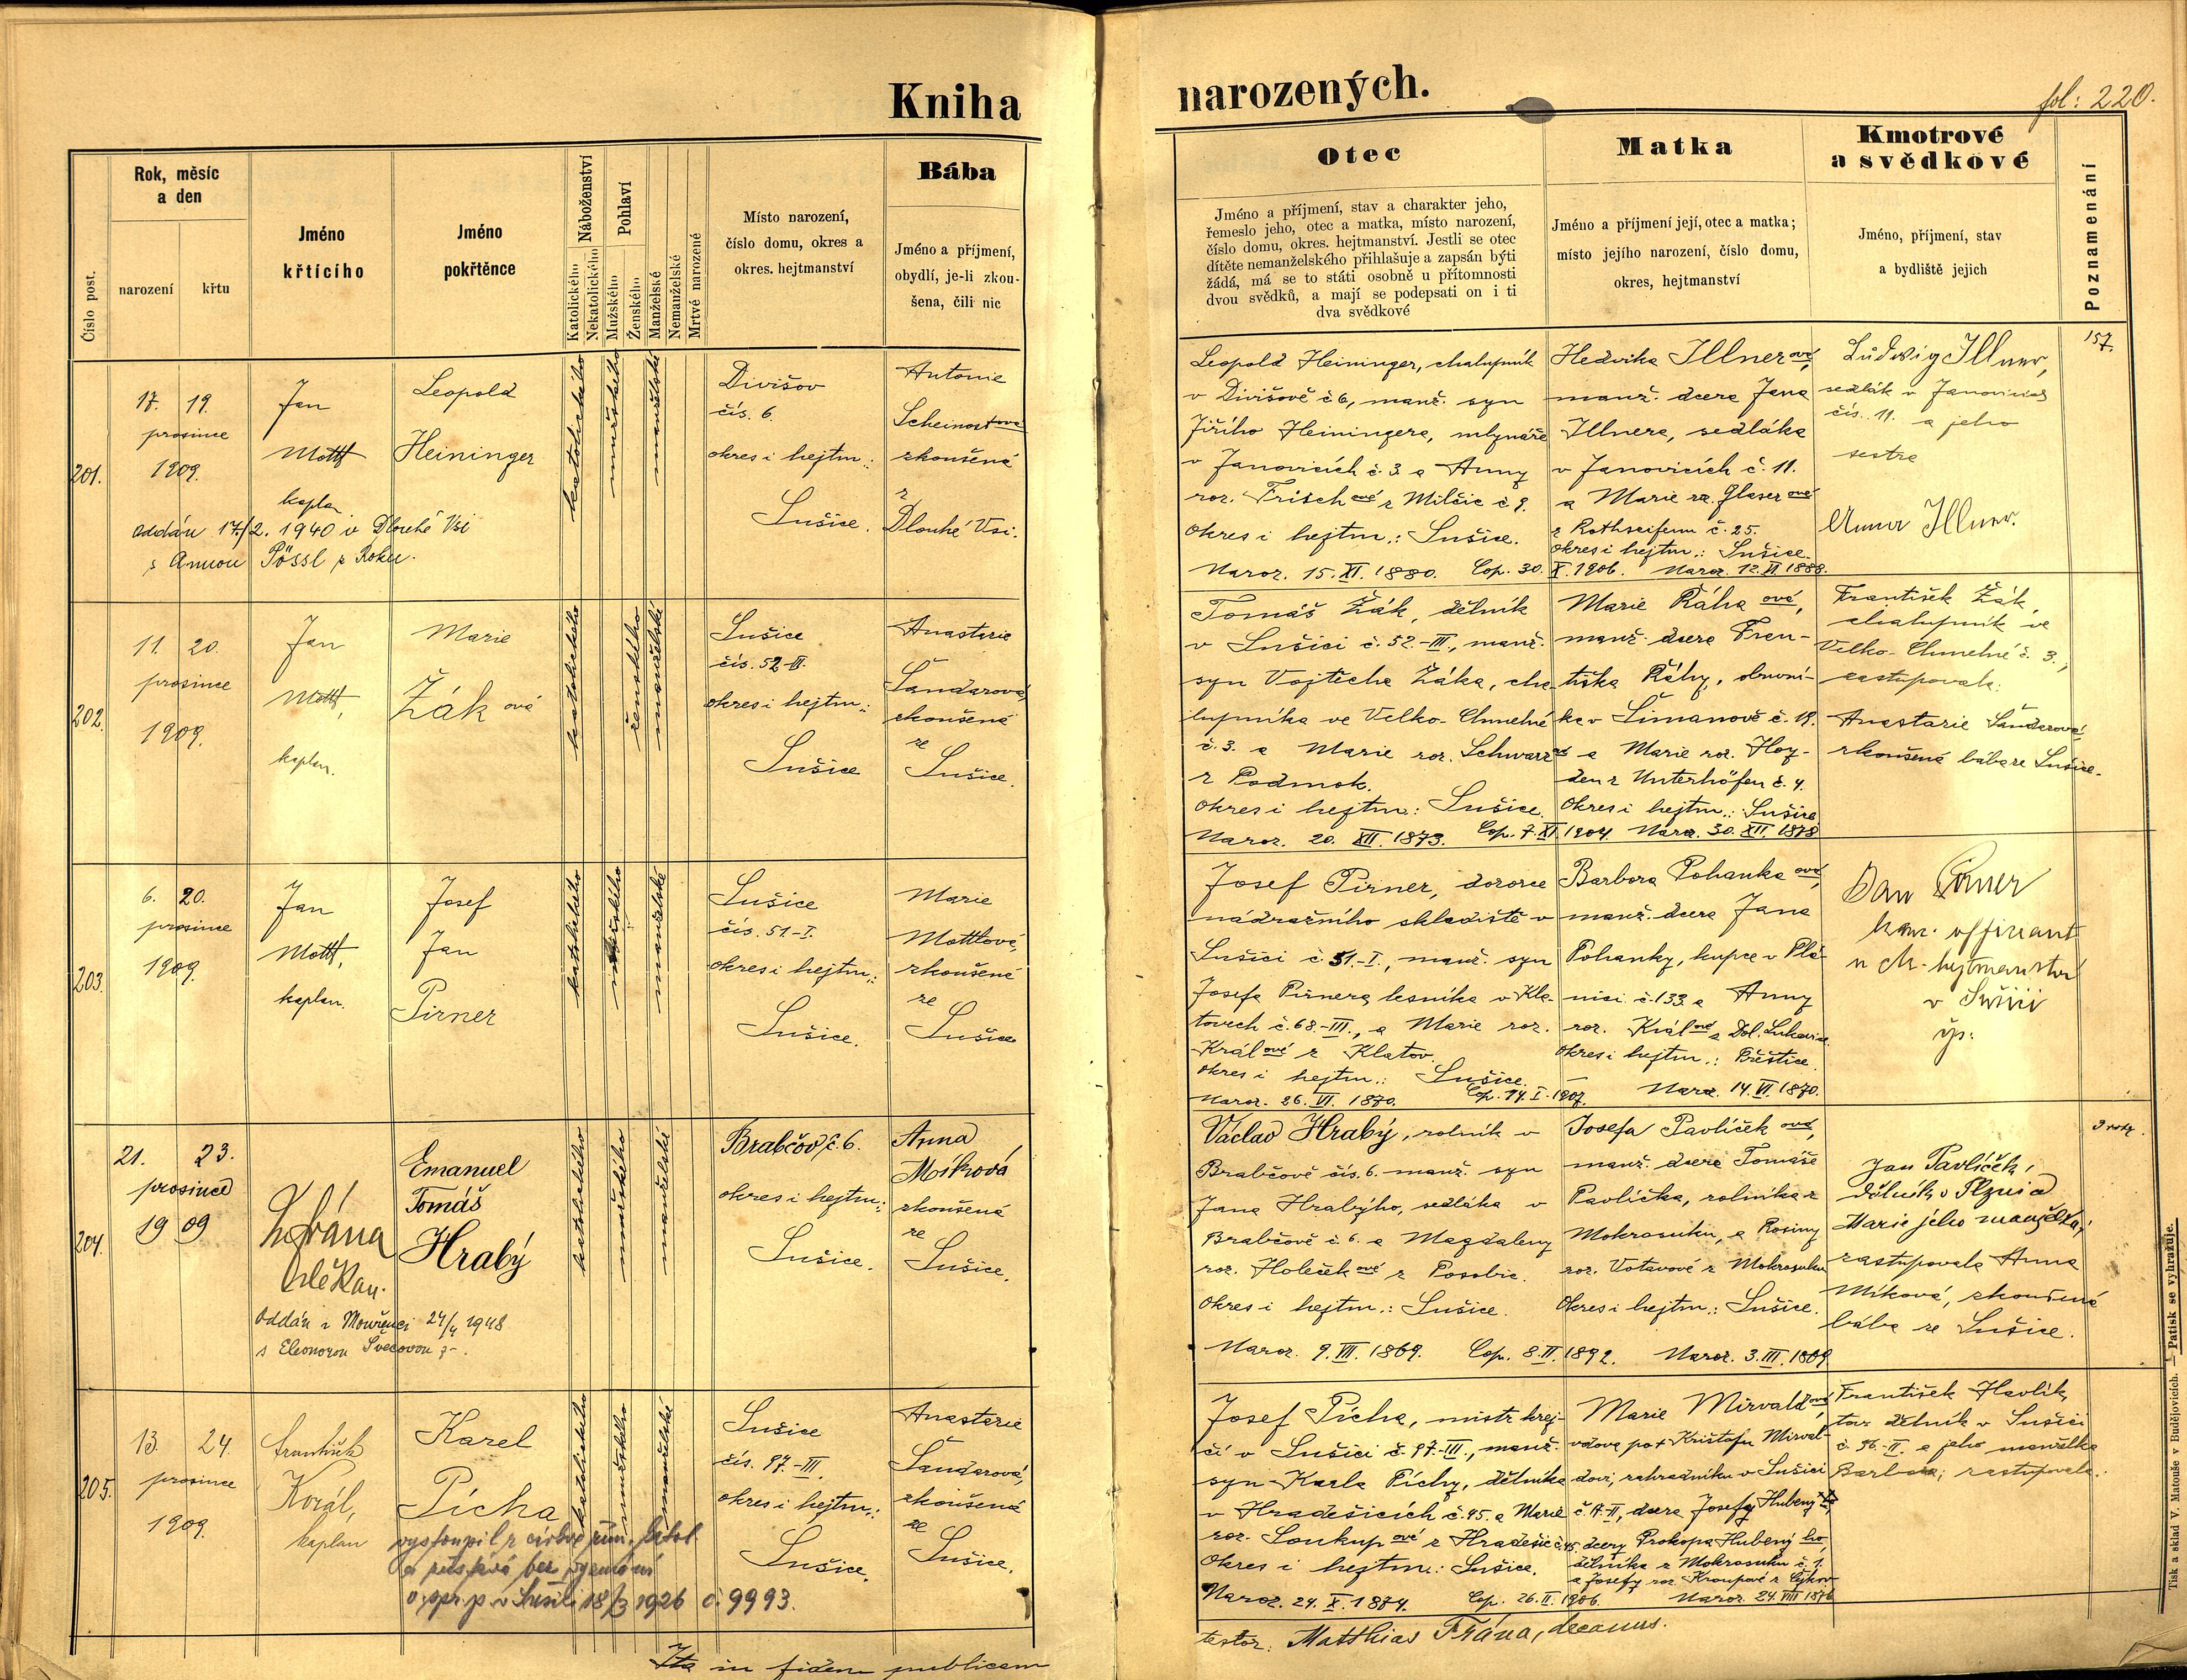 Kniha
narozených.
fol: 220.
Číslo post.
Rok, měsíc
a den
narození
křtu
Jméno
křtícího
Jméno
pokřtěnce
Náboženství
Katolického
Nekatolického
Pohlaví
Mužského
Ženského
Manželské
Nemanželské
Mrtvé narozené
Místo narození,
číslo domu, okres a
okres. hejtmanství
Bába
Jméno a příjmení,
obydlí, je-li zkou-
šena, čili nic
Otec
Jméno a příjmení, stav a charakter jeho,
řemeslo jeho, otec a matka, místo narození,
číslo domu, okres. hejtmanství. Jestli se otec
dítěte nemanželského přihlašuje a zapsán býti
žádá, má se to státi osobně u přítomnosti
dvou svědků, a mají se podepsati on i ti
dva svědkové
Matka
Jméno a příjmení její, otec a matka;
místo jejího narození, číslo domu,
okres, hejtmanství
Kmotrové
a svědkové
Jméno, příjmení, stav
a bydliště jejich
Poznamenání
201.
17. 19.
prosince
1909.
Jan
Mottl
kaplan
Leopold
Heininger
katolického
mužského
manželské
Divišov
čís. 6.
okres i hejtm.:
Sušice.
Antonie
Scheinostová
zkoušená
z
Dlouhé Vsi.
Oddán 17/2. 1940 v Dlouhé Vsi
s Annou Pössl z Roku.
Leopold Heininger, chalupník
v Divišově č 6, manž. syn
Jiřího Heiningera, mlynáře
v Janovicích č. 3 a Anny
roz. Frischové z Milčic č 9.
okres i hejtm.: Sušice.
Naroz. 15. XI. 1880. Cop. 30. X. 1906.
Hedvika Illnerová,
manž. dcera Jana
Illnera, sedláka
v Janovicích č. 11.
a Marie roz. Glaserové
z Rothseifenu č. 25.
okres i hejtm.: Sušice.
Naroz. 12. VI. 1888.
Ludwig Illner,
sedlák v Janovicích
čís. 11. a jeho
sestra
Anna Illner.
157.
202.
11. 20.
prosince
1909.
Jan
Mottl,
kaplan.
Marie
Žák ová
katolického
ženského
manželské
Sušice
čís. 52-III.
okres i hejtm.:
Sušice
Anastazie
Šandarová,
zkoušená
ze
Sušice.
Tomáš Žák, dělník
v Sušici č. 52.-III., manž.
syn Vojtěcha Žáka, cha-
lupníka ve Velko-Chmelné
č. 3. a Marie roz. Schwarzové
z Podmok.
okres i hejtm.: Sušice.
Naroz. 20. XII. 1873. Cop. 7. XI. 1904.
Marie Řáha ová,
manž. dcera Fran-
tiška Řáhy, obuvní-
ka v Šimanově č. 19.
a Marie roz. Hoy-
den z Unterhöfen č. 4.
Okres i hejtm.: Sušice
Naroz. 30. XII. 1878
František Žák,
chalupník ve
Velko-Chmelné č. 3.,
zastupovala:
Anastazie Šandarová,
zkoušená bába ze Sušice.
203.
6. 20.
prosince
1909.
Jan
Mottl,
kaplan.
Josef
Jan
Pirner
katolického
mužského
manželské
Sušice
čís. 51-I.
okres i hejtm.:
Sušice.
Marie
Mottlová,
zkoušená
ze
Sušice
Josef Pirner, dozorce
nádražního skladiště v
Sušici č. 51.-I., manž. syn
Josefa Pirnera, lesníka v Kla-
tovech č. 68.-III., a Marie roz.
Králové z Klatov.
okres i hejtm.: Sušice.
Naroz. 26. VI. 1870. Cop. 14. I. 1907.
Barbora Pohanka ová,
manž. dcera Jana
Pohanky, kupce v Plá-
nici č. 133 a Anny
roz. Králové z Dol. Lukavice
okres i hejtm.: Přeštice.
Naroz. 14. VI. 1870.
Jan Pirner
kanc. officiant
u ok. hejtmanství
v Sušici
204.
21. 23.
prosince
1909
Frána
děkan.
Emanuel
Tomáš
Hrabý
katolického
mužského
manželské
Brabčov č. 6.
okres i hejtm.:
Sušice.
Anna
Míková
zkoušená
ze
Sušice.
Oddán v Mouřenci 24/4 1948
s Eleonorou Švecovou
Václav Hrabý, rolník v
Brabčově čís. 6. manž. syn
Jana Hrabýho, sedláka v
Brabčově č. 6. a Magdaleny
roz. Holečkové z Posobic.
okres i hejtm.: Sušice.
Naroz. 9. VII. 1869. Cop. 8. II. 1892.
Josefa Pavlíček ová,
manž. dcera Tomáše
Pavlíčka, rolníka z
Mokrosuku, a Rosiny
roz. Votavové z Mokrosuku
Okres i hejtm.: Sušice.
Naroz. 3. III. 1869
Jan Pavlíček,
dělník v Plzni a
Marie jeho manželka;
zastupovala Anna
Míková, zkoušená
bába ze Sušice.
205.
13. 24.
prosince
1909.
František
Korál,
kaplan
Karel
Pícha
katolického
mužského
manželské
Sušice
čís. 97.-III.
okres i hejtm.:
Sušice.
Anastazie
Šandarová,
zkoušená
ze
Sušice.
vystoupil z církve řím. katol.
a zůstává bez vyznání
o. spr. p. v Sušici 18/3 1926 č. 9993.
Josef Pícha, mistr krej-
čí v Sušici č. 97.-III., manž.
syn Karla Píchy, dělníka
v Hradešicích č. 45. a Marie
roz. Soukupové z Hradešic č. 45.
Okres i hejtm.: Sušice.
Naroz. 24. X. 1874. Cop. 26. II. 1906.
Marie Mirvaldová,
vdova po † Krištofu Mirval-
dovi, zahradníku v Sušici
č. 17.-II, dcera Josefy Hubený
dcery Prokopa Hubený ho,
dělníka z Mokrosuku č. 1.
a Josefy roz. Kroupové z
Naroz. 24. VIII 1876
František Havlík,
tov. dělník v Sušici
č. 96.-II. a jeho manželka
Barbora; zastupovala.
Ita in fidem publicam
testor: Matthias Frána, decanus.
Tisk a sklad V. Matouše v Budějovicích. — Patisk se vyhražuje.